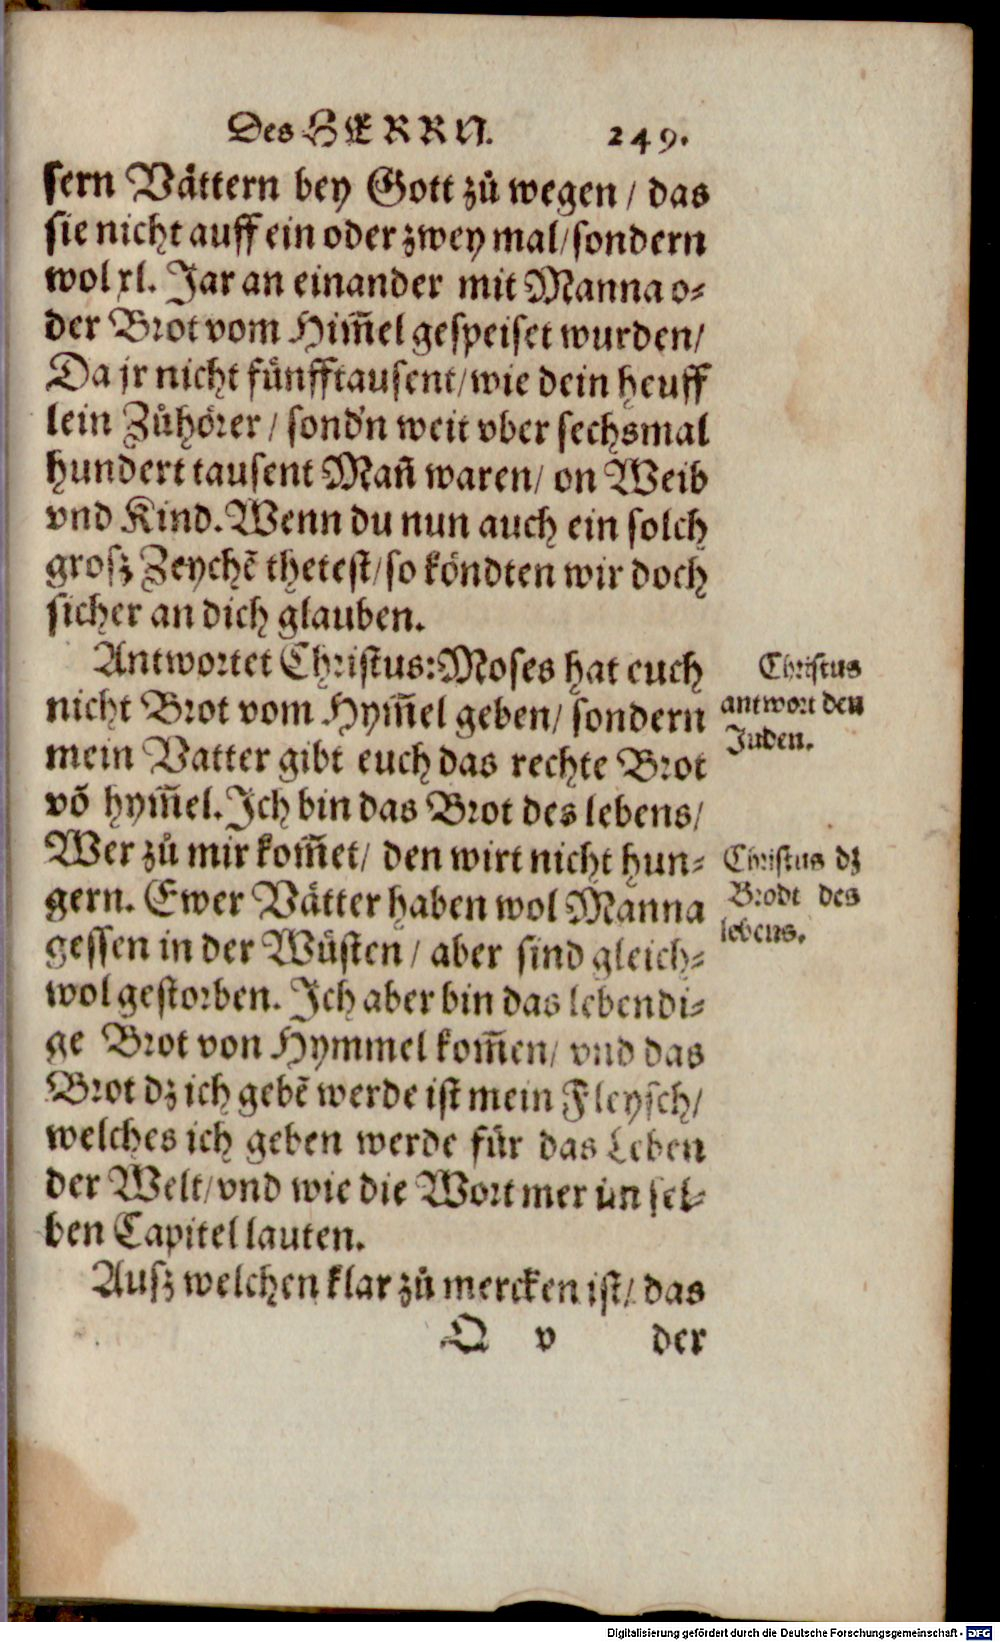 Des HERRN. 249.
sern Vättern bey Gott zů wegen / das
sie nicht auff ein oder zwey mal / sondern
wol xl. Jar an einander mit Manna o⸗
der Brot vom Him̃el gespeiset wurden /
Da jr nicht fünfftausent / wie dein heuff
lein Zůhörer / sond'n weit vber sechsmal
hundert tausent Mañ waren / on Weib
vnd Kind. Wenn du nun auch ein solch
grosz Zeychẽ thetest / so köndten wir doch
sicher an dich glauben.
Antwortet Christus: Moses hat euch
nicht Brot vom Hym̃el geben / sondern
mein Vatter gibt euch das rechte Brot
võ hym̃el. Ich bin das Brot des lebens /
Wer zů mir kom̃et / den wirt nicht hun⸗
gern. Ewer Vätter haben wol Manna
gessen in der Wüsten / aber sind gleich⸗
wol gestorben. Ich aber bin das lebendi⸗
ge Brot von Hymmel kom̃en / vnd das
Brot dz ich gebẽ werde ist mein Fleysch /
welches ich geben werde für das Leben
der Welt / vnd wie die Wort mer im sel⸗
ben Capitel lauten.
Ausz welchen klar zů mercken ist / das
Q v der
Christus
antwort den
Juden.
Christus dz
Brodt des
lebens.
Digitalisierung gefördert durch die Deutsche Forschungsgemeinschaft - DFG